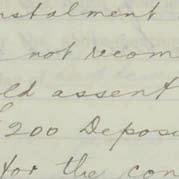 nstalment
not recom
ld assent
£200 Deposi
for the con